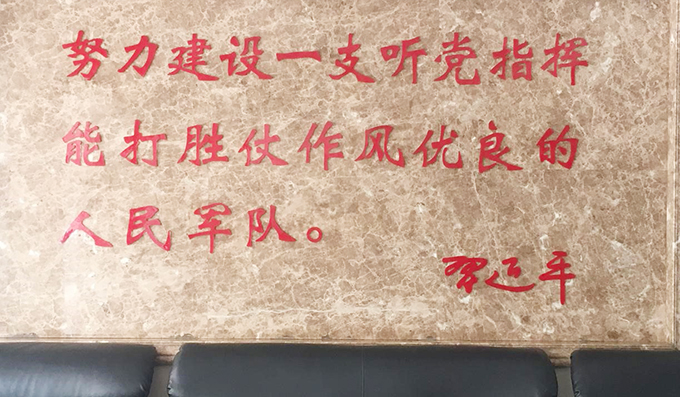 努力建设一支听党指挥
能打胜仗作风优良的
人民军队。
习近平